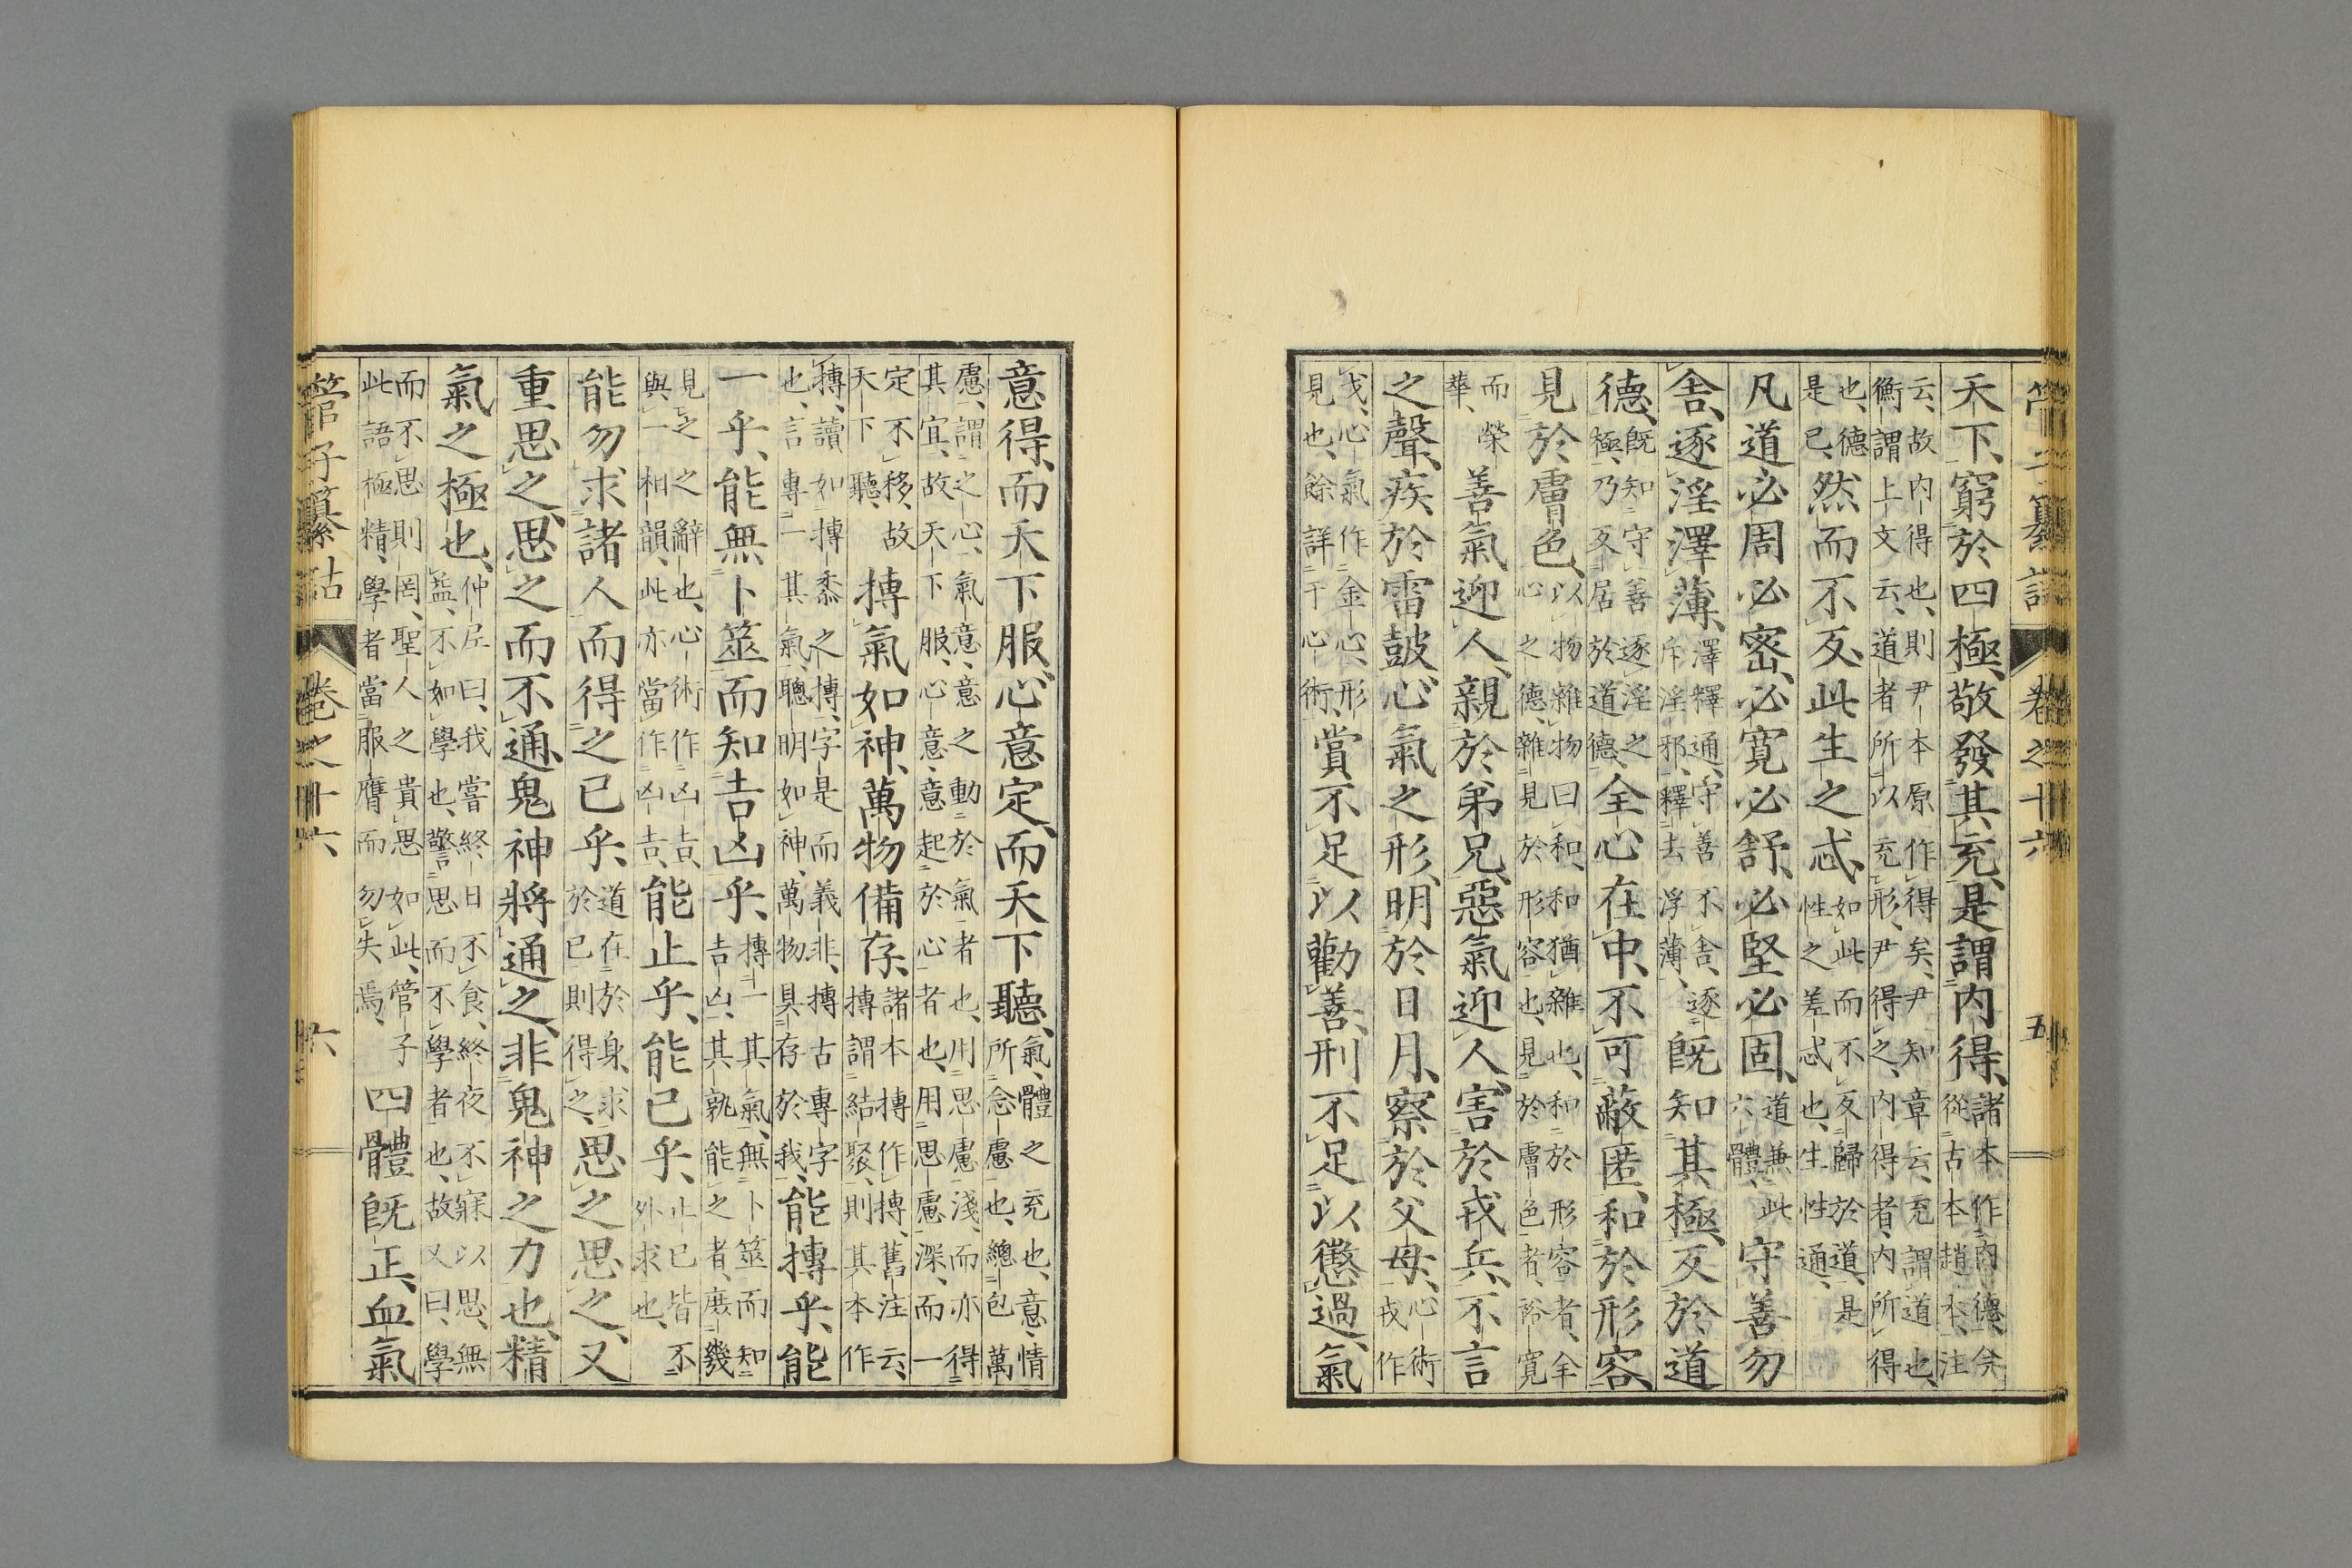 管子纂詁 卷之十六 五
天下、窮於四極、敬發其充、是謂内得、諸本作内德、仐從古本趙本、注
云、故内得也、則尹本原作得矣、尹知章云、充謂道也、衡謂上文云、道者所以充形、尹得之、内得者、内所得
也、德是已、然而不反、此生之忒、如此而不反歸於道、是性之差忒也、生性通、
凡道必周必密、必寛必舒、必堅必固、道兼此六體、守善勿
舍、逐淫澤薄、澤釋通、守善不舍、逐斥淫邪、釋去浮薄、既知其極、反於道
德、既知守善逐淫之極、乃反居於道德、全心在中、不可蔽匿、和於形容、
見於膚色、以物雜物曰和、和猶雜也、和於形容者、全心之德、雜見於形容也、見於膚色者、裕寛
而榮華、善氣迎人、親於弟兄、惡氣迎人、害於戎兵、不言
之聲、疾於雷鼓、心氣之形、明於日月、察於父母、心術戎作
戎、心氣作金心、形見也、餘詳于心術、賞不足以勸善、刑不足以懲過、氣
意得、而天下服、心意定、而天下聽、氣、體之充也、意、情所念慮也、總包萬
慮、謂之心、氣意、意之動於氣者也、用思慮淺、而亦得其宜、故天下服、心意、意起於心者也、用思慮深、而一
定不移、故天下聽、摶氣如神、萬物備存、諸本摶作搏、舊注云、摶謂結聚、則其本作
摶、讀如摶黍之摶、字是而義非、摶古專字也、言專一其氣、聰明如神、萬物具存於我、能摶乎、能
一乎、能無卜筮而知吉凶乎、摶一其氣、無卜筮而知吉凶、其孰能之者、庻幾
見之之辭也、心術作凶吉、與一相韻、此亦當作凶吉、能止乎、能已乎、止已皆不外求也、
能勿求諸人而得之已乎、道在於身、求於已則得之、思之思之、又
重思之、思之而不通、鬼神將通之、非鬼神之力也、精
氣之極也、仲尼曰、我嘗終日不食、終夜不寐以思、無益、不如學也、警思而不學者也、故又曰、學
而不思則罔、聖人之貴思如此、管子此語極精、學者當服膺而勿失焉、四體既正、血氣
管子纂詁 卷之十六 六